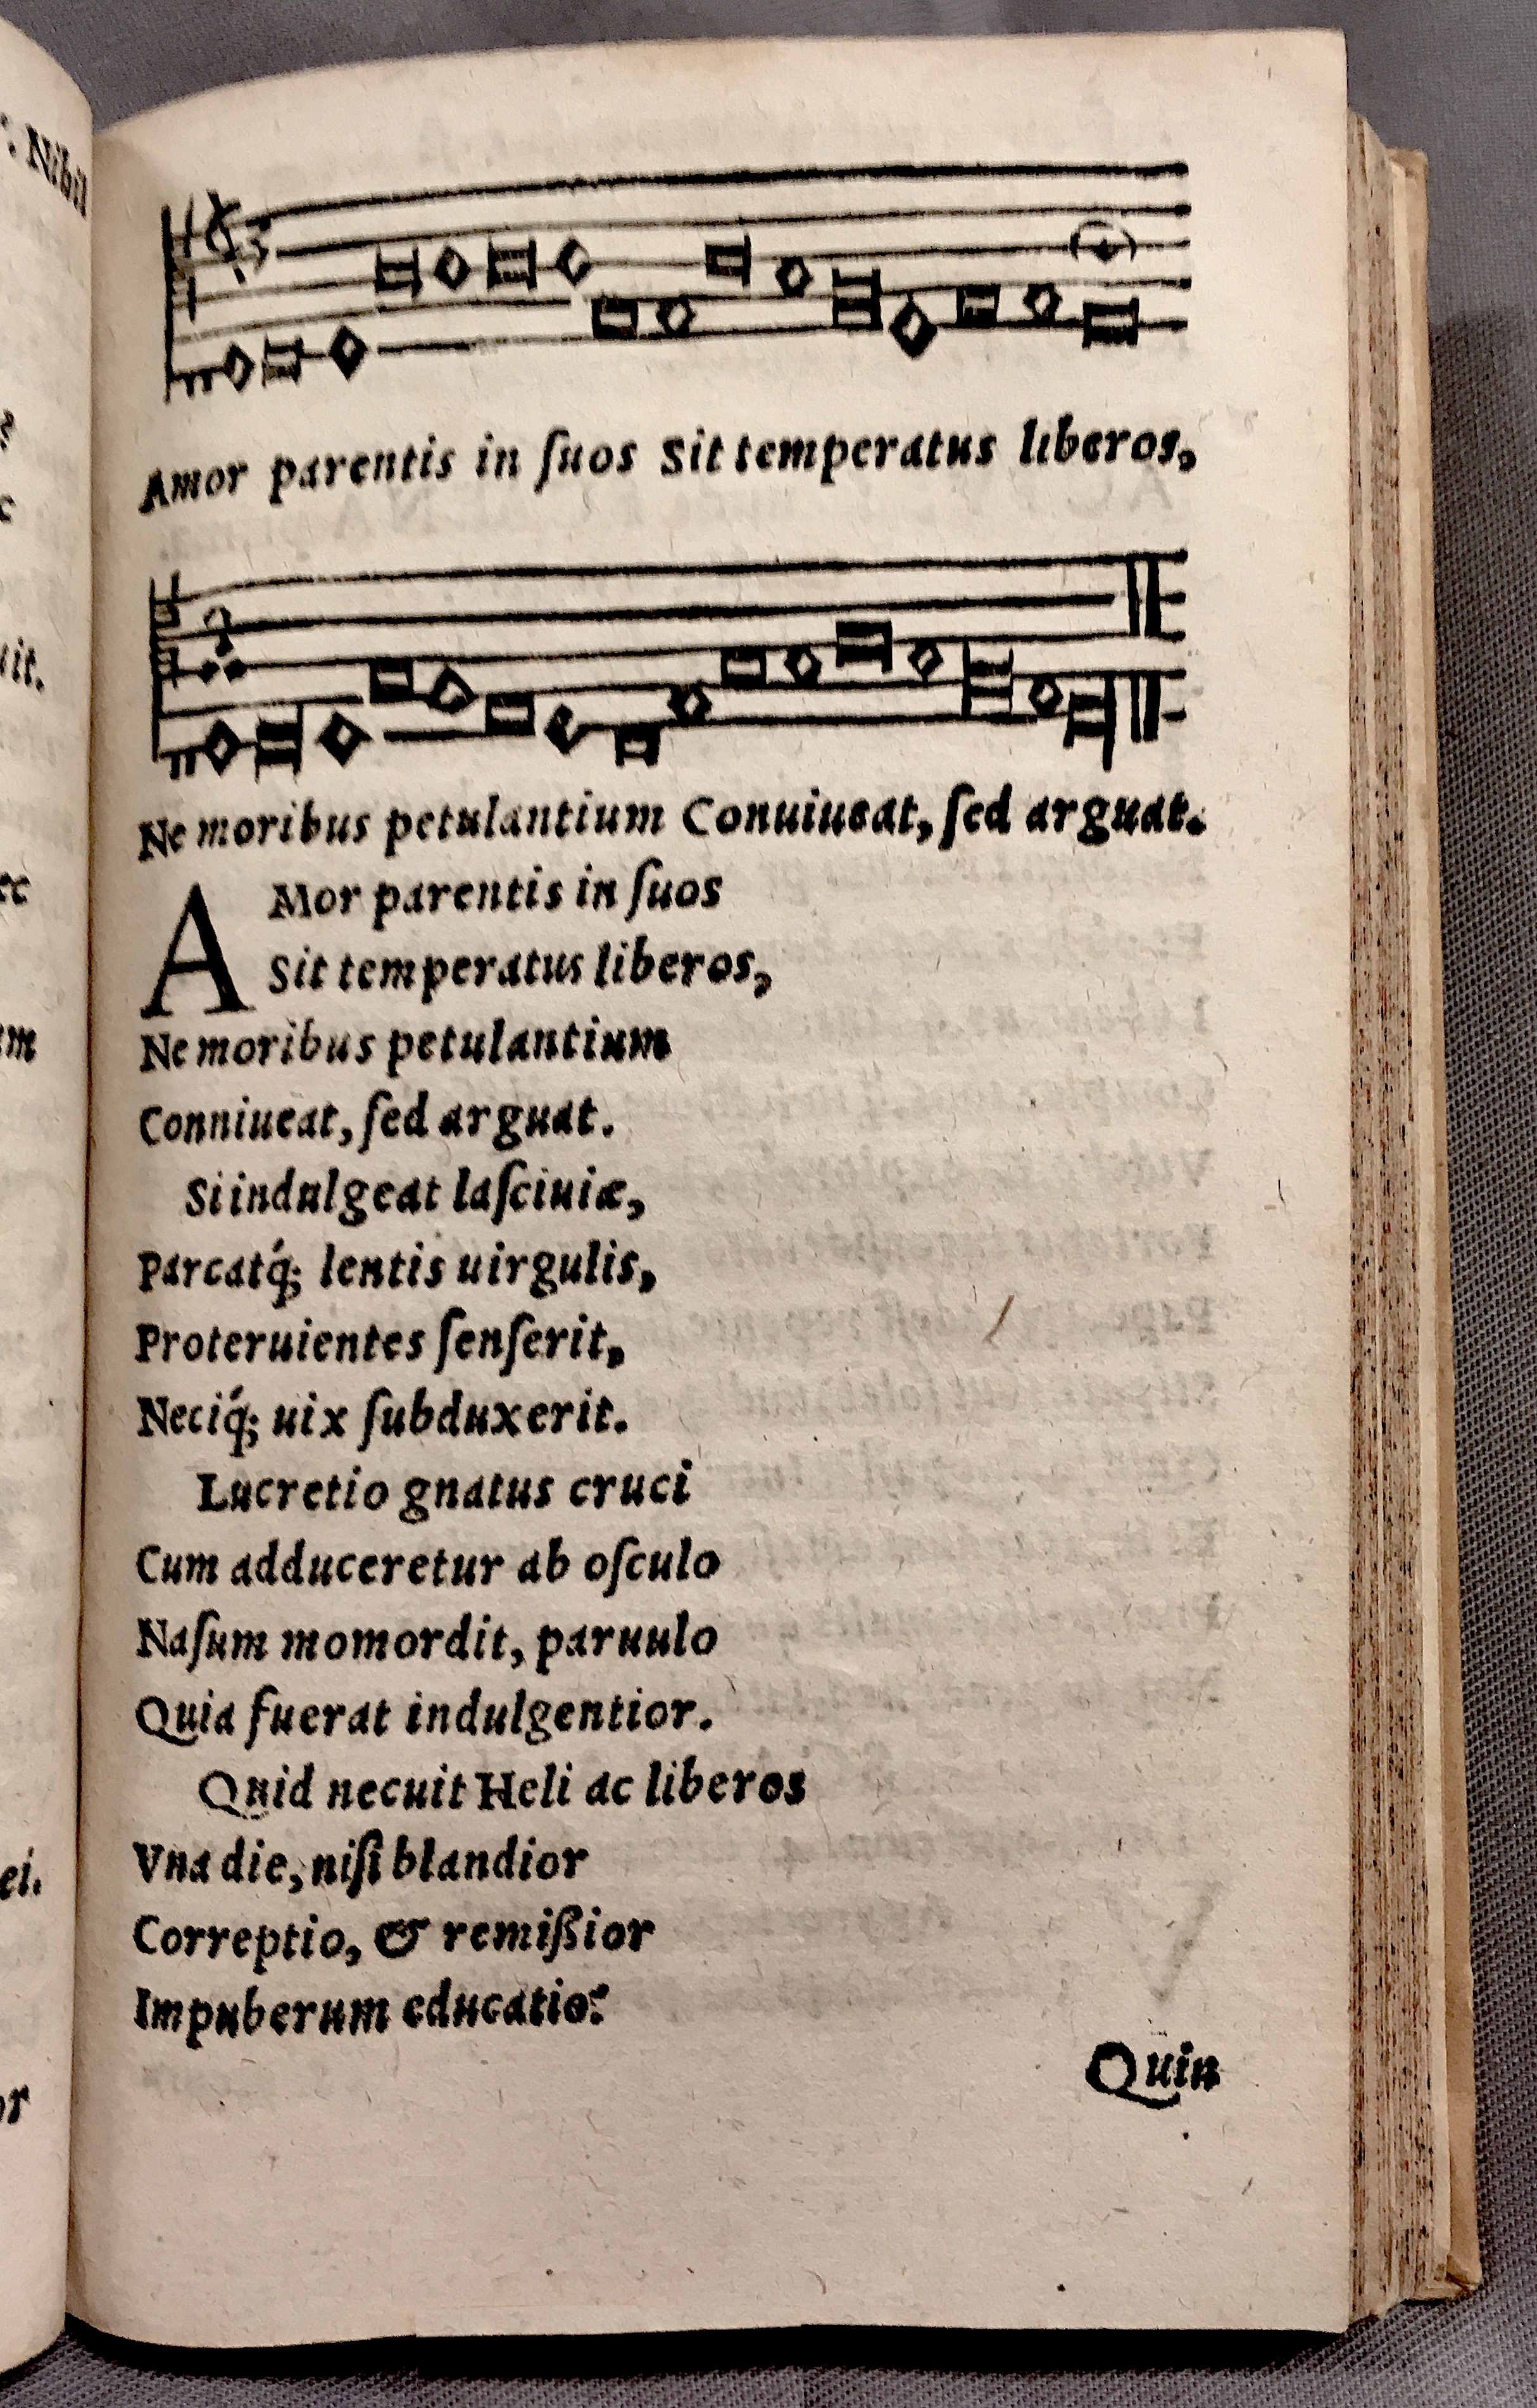 Nihil
Amor parentis in ſuos Sit temperatus liberos,
Ne moribus petulantium Conuiueat, ſed arguat.
AMor parentis in ſuos
Sit temperatus liberos,
Ne moribus petulantium
Conniueat, ſed arguat.
Si indulgeat laſciuiæ,
Parcatq́; lentis uirgulis,
Proteruientes ſenſerit,
Neciq́; uix ſubduxerit.
Lucretio gnatus cruci
Cum adduceretur ab oſculo
Naſum momordit, paruulo
Quia fuerat indulgentior.
Quid necuit Heli ac liberos
Vna die, niſi blandior
Correptio, & remißior
Impuberum educatio?
Quin